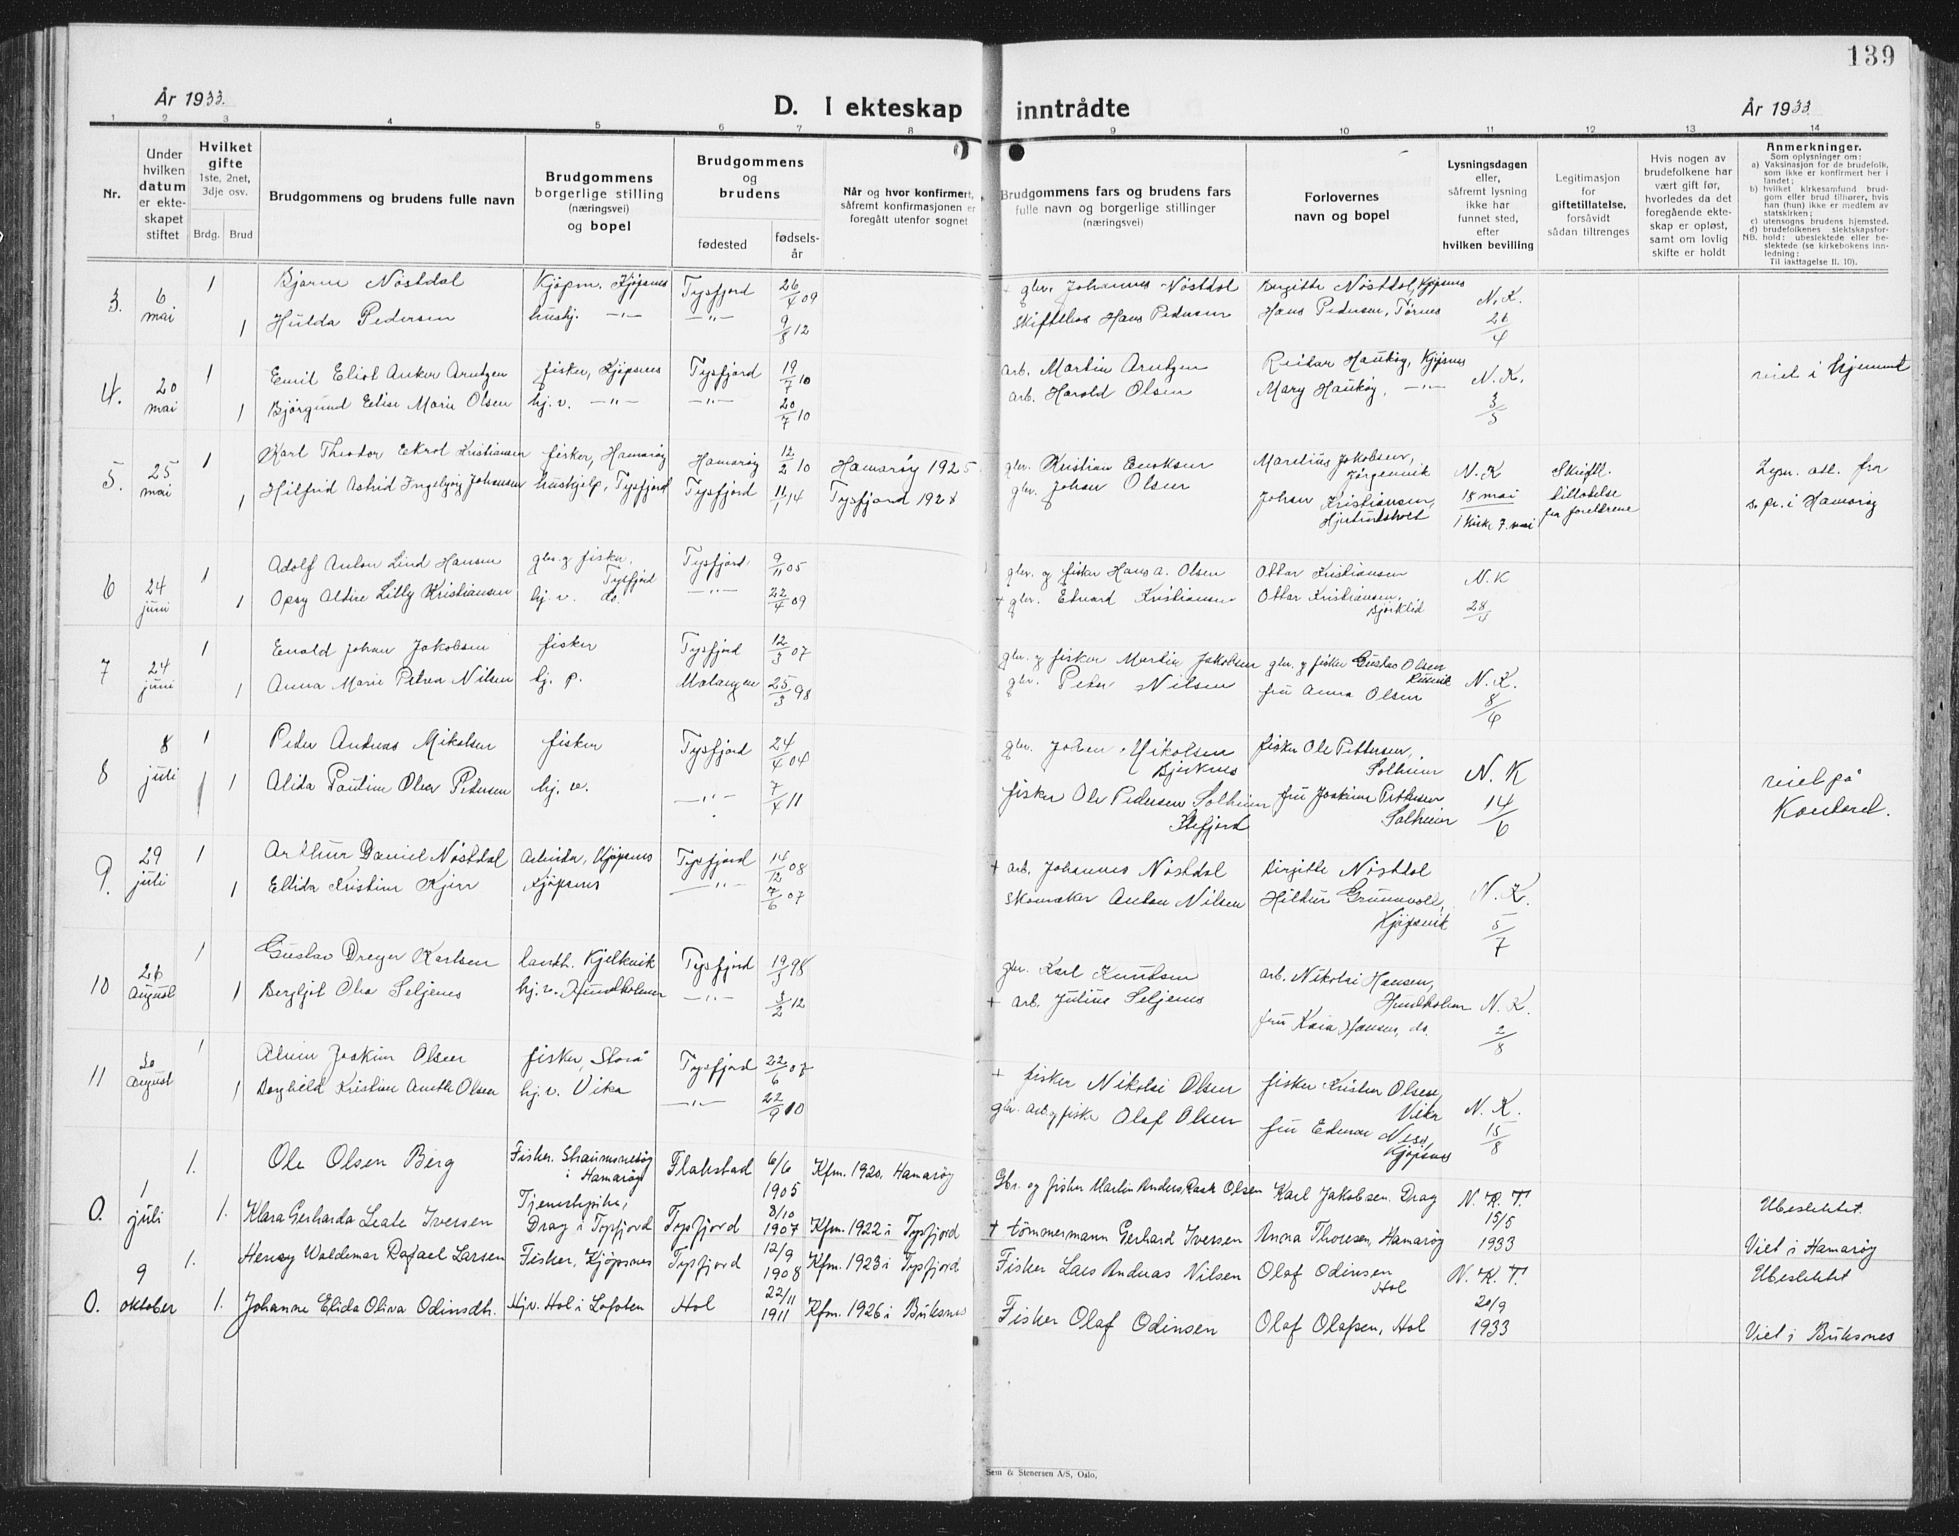 139
År 1933.
D. I ekteskap inntrådte
År 1933
1 2 3 4 5 6 7 8 9 10 11 12 13 14
Nr.
Under hvilken datum er ekteskapet stiftet
Hvilket gifte
1ste, 2net, 3dje osv.
Brdg. Brud
Brudgommens og brudens fulle navn
Brudgommens borgerlige stilling (næringsvei) og bopel
Brudgommens og brudens
fødested
fødselsår
Når og hvor konfirmert, såfremt konfirmasjonen er foregått utenfor sognet
Brudgommens fars og brudens fars fulle navn og borgerlige stillinger (næringsvei)
Forlovernes navn og bopel
Lysningsdagen eller, såfremt lysning ikke har funnet sted, efter hvilken bevilling
Legitimasjon for giftetillatelse, forsåvidt sådan tiltrenges
Hvis nogen av brudefolkene har vært gift før, hvorledes da det foregående ekteskap er opløst, samt om lovlig skifte er holdt
Anmerkninger.
Som oplysninger om:
a) Vaksinasjon for de brudefolk, som ikke er konfirmert her i landet;
b) hvilket kirkesamfund brudgom eller brud tilhører, hvis han (hun) ikke er medlem av statskirken;
c) utensogns brudens hjemsted.
d) brudefolkenes slektskapsforhold: ubeslektede eller beslektede (se kirkebokens innledning:
NB. Til iakttagelse II. 10).
3. 6 mai 1 Bjarne Nöstdal Kjöpm. Kjöpsnes Tysfjord 26/4 09 + gbr. Johannes Nöstdal Birgitte Nöstdal, Kjöpsnes N.K. 26/4
1 Hulda Pedersen hushj. —"— —"— 9/8 12 Skiftebas Hans Pedersen Hans Pedersen, Törnes
4. 20 mai 1 Emil Eliot Anker Arntzen fisker, Kjöpsnes Tysfjord 19/7 10 arb. Martin Arntzen Reidar Hauköy, Kjöpsnes N.K. 3/5 viet i hjemmet
1 Björgund Elise Marie Olsen hj. v. —"— —"— 20/7 10 arb. Harold Olsen Mary Hauköy, —"—
5. 25 mai 1 Karl Theodor Ekrol Kristiansen fisker, Hamaröy Hamaröy 12/2 10 Hamaröy 1925 gbr. Kristian Enoksen Marelius Jakobsen, Jörgenvik N.K. 18 mai Skriftl. tillatelse fra foreldrene Lysn. att. fra
1 Hilfrid Astrid Ingebjörg Johansen hushjelp, Tysfjord Tysfjord 11/1 14 Tysfjord 1928 gbr. Johan Olsen Johan Kristiansen, 1 kirke 7. mai s.pr. i Hamaröy
6 24 juni 1 Adolf Anton Lind Hansen gbr. og fisker, Tysfjord Tysfjord 9/11 05 gbr. og fisker Hans A. Olsen Ottar Kristiansen N.K 28/4
1 Opsy Aldire Lilly Kristiansen hj. v. do. —"— 22/4 09 + gbr. Edvard Kristiansen Ottar Kristiansen, Bjorklid
7 24 juni 1 Enold Johan Jakobsen fisker Tysfjord 12/3 07 gbr. og fisker Martin Jakobsen gbr. og fisker Gustav Olsen N.K. 8/6
1 Anna Marie Petrea Nilsen hj. p. Malangen 25/3 98 gbr. Peder Nilsen fru Anna Olsen
8 8 juli 1 Peder Andreas Mikalsen fisker Tysfjord 24/4 04 gbr. Johan Mikalsen Bjerknes fisker Ole Pettersen, Solheim N.K 14/6 viet på Kontoret.
1 Alida Pauline Olea Pedersen hj. v. —"— 7/4 11 fisker Ole Pedersen Solheim Kjefjord fru Joakime Pettersen Solheim
9. 29 juli 1 Arthur Daniel Nöstdal Arbeider, Kjöpsnes Tysfjord 14/12 08 + arb. Johannes Nöstdal Birgitte Nöstdal N.K. 5/7
1 Ellida Kristine Kjær Kjöpsnes —"— 7/6 07 Skomaker Anton Nilsen Hildur Grunnvoll, Kjöpsvik
10 26 August 1 Gustav Dreyer Karlsen landh. Kjelkvik Tysfjord 19/3 98 gbr. Karl Knudsen arb. Nikolai Hansen, Hundholmen N.K. 2/8
1 Bergljot Olea Seljenes hj. v. Hundholmen —"— 3/2 12 + arb. Julius Seljenes fru Kaia Hansen, do.
11 30 August 1 Joakim Olsen fisker, Storå Tysfjord 22/6 07 + fisker Nikolai Olsen fisker Kristen Olsen, Vika N.K. 15/8
1 Borghild Kristine Anette Olsen hj. v. Vika —"— 22/9 10 gbr. arb. og fisker Olaf Olsen fru Edvar Ness, Kjöpsnes
0. 1 juli 1. Ole Olsen Berg Fisker. i Hamaröy Flakstad 6/6 1905 Kfm. 1920, Hamaröy Gbr. og fisker Martin Anders Rask Olsen Karl Jakobsen. Drag N.K.T. 15/5 1933 Ubeslektet.
1. Klara Gerharda Leale Iversen Tjenestepike, Drag i Tysfjord Tysfjord 8/10 1907 Kfm. 1922 i Tysfjord + tömmermann Gerhard Iversen Anna Thoresen, Hamaröy Viet i Hamaröy
0. 9 oktober 1. Henry Waldemar Rafael Larsen Fisker, Kjöpsnes Tysfjord 12/9 1908 Kfm. 1923 i Tysfjord Fisker Lars Andreas Nilsen Olaf Odinsen Hol N.K.T. 20/9 1933 Ubeslektet
1. Johanne Elida Oliva Odinsdh. Hjv. Hol i Lofoten Hol 22/11 1911 Kfm. 1926 i Buksnes Fisker Olaf Odinsen Olaf Olafsen, Hol Viet i Buksnes
Sem & Stenersen A/S, Oslo.